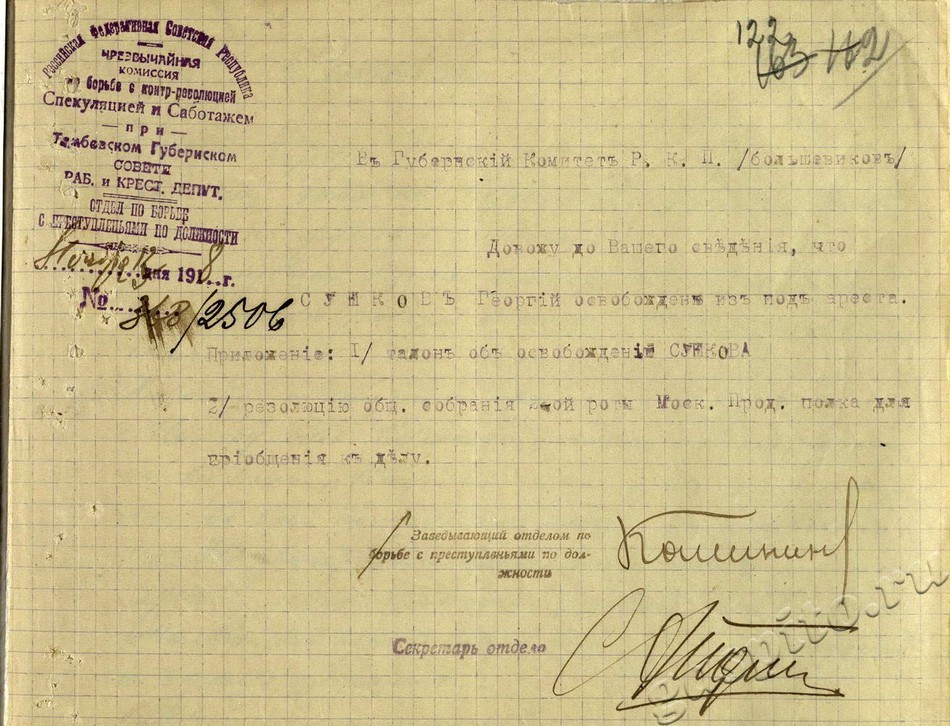 122
163 112
Российская Федеративная Советская Республика
ЧРЕЗВЫЧАЙНАЯ
КОМИССИЯ
по борьбе с контр-революцией
Спекуляцией и Саботажем
— при —
Тамбовском Губернском
СОВЕТЕ
РАБ. и КРЕСТ. ДЕПУТ.
ОТДЕЛ ПО БОРЬБЕ
С ПРЕСТУПЛЕНЬЯМИ ПО ДОЛЖНОСТИ
Ноября дня 1918 г.
№ /2506
Въ Губернскій Комитетъ Р. К. П. /большевиковъ/
Довожу до Вашего свѣдѣнія, что
СУШКОВЪ Георгій освобожденъ изъ подъ ареста.
Приложеніе: I/ талонъ объ освобожденіи СУШКОВА
2/ резолюцію общ. собранія 2-ой роты Моск. Прод. полка для
пріобщенія къ дѣлу.
Заведывающий отделом по
борьбе с преступленьями по дол-
жности
Секретарь отдела